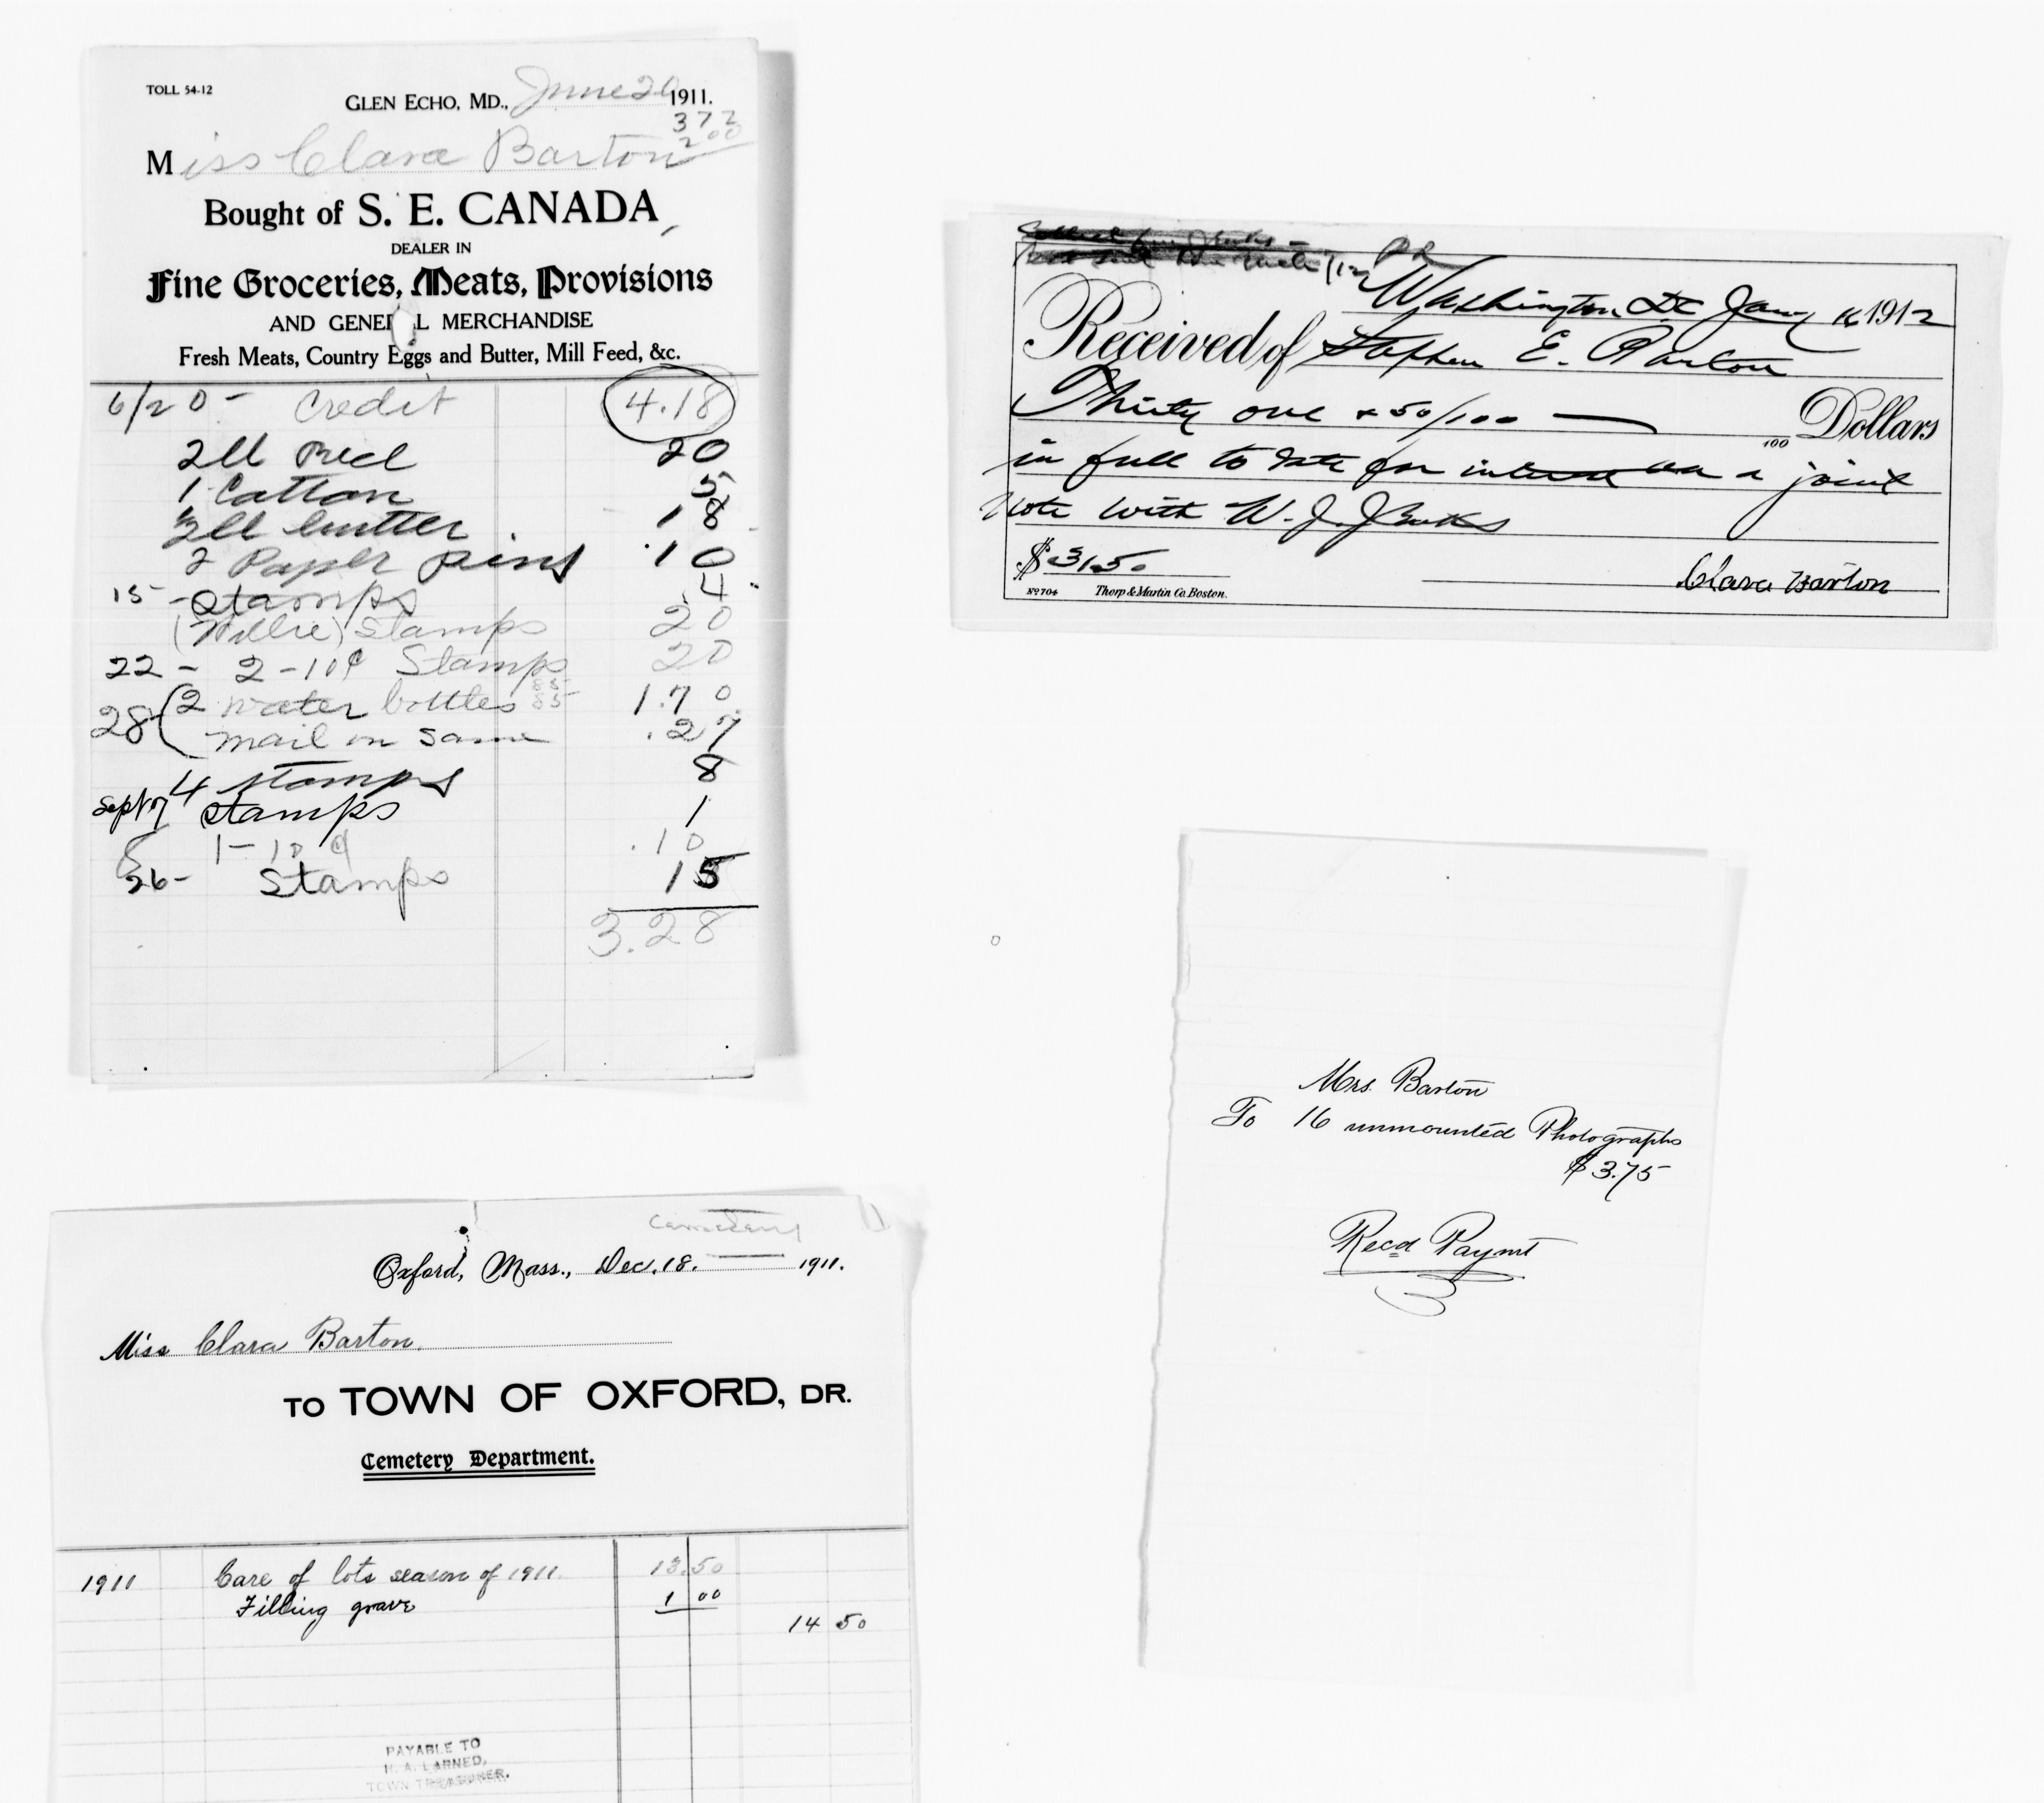 TOLL 54-12
GLEN ECHO, MD., June 20 1911.
372
200
Miss Clara Barton
Bought of S. E. CANADA,
DEALER IN
Fine Groceries, Meats, Provisions
AND GENERAL MERCHANDISE
Fresh Meats, Country Eggs and Butter, Mill Feed, &c.
6/20- Credit 4.18
2 lb 20
1 Cotton 5
lb butter 18
2 Paper pins .10
15 - Stamps .4
(Willie) Stamps 20
22 - 2-10¢ Stamps 20
28 (2 water bottles 85 85 1.70
mail on same .27
4 stamps 8
Sept 7 stamps 1
8 1-10¢ .10
26- Stamps 15
3.28
Washington DC Jany 16 1912
Received of Stephen E. Barton
Thirty one + 50/100 — 100 Dollars
in full to date for interest on a joint
Note with W. J.
$31.50
Clara Barton
No 704 Thorp & Martin Co. Boston.
Mrs. Barton
To 16 unmounted Photographs
$3.75
Recd Paymt
Cemetery
Oxford, Mass., Dec. 18. 1911.
Miss Clara Barton.
TO TOWN OF OXFORD, DR.
Cemetery Department.
1911 Care of lots season of 1911. 13.50
Filling grave 1 00
14 50
PAYABLE TO
H. A. LARNED,
TOWN TREASURER.